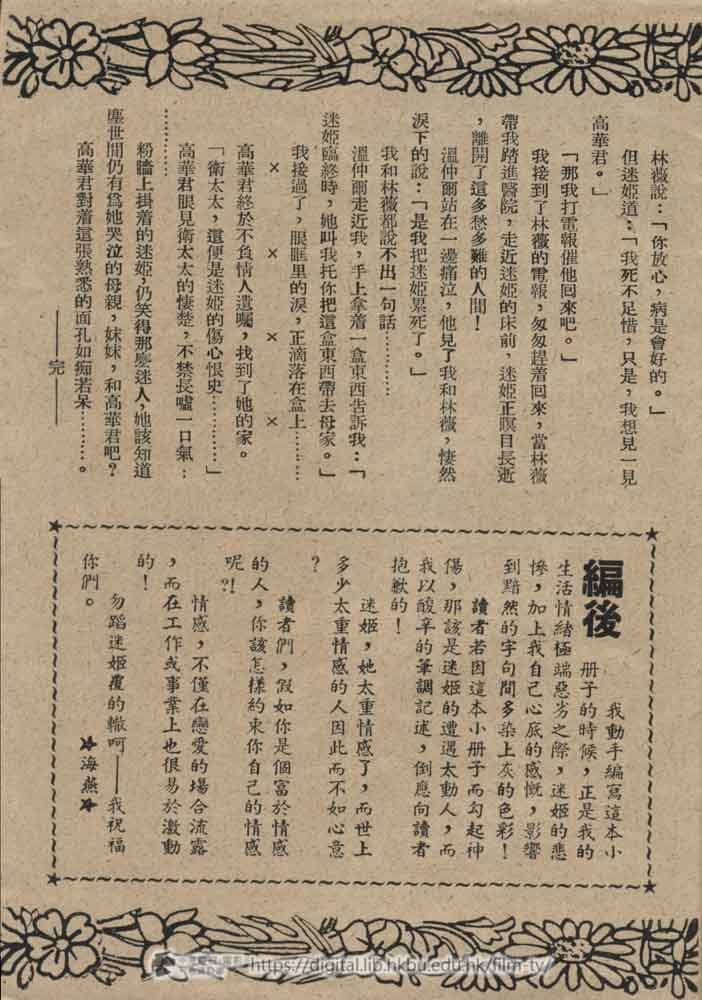 林薇說：「你放心，病是會好的。」
但迷姬道：「我死不足惜，只是，我想見一見
高華君。」
「那我打電報催他囘來吧。」
我接到了林薇的電報，匆匆趕着囘來，當林薇
帶我踏進醫院，走近迷姬的床前，迷姬正瞑目長逝
，離開了這多愁多難的人間！
溫仲爾站在一邊痛泣，他見了我和林薇，悽然
淚下的說：「是我把迷姬累死了。」
我和林薇都說不出一句話…………
溫仲爾走近我，手上拿着一盒東西告訴我：「
迷姬臨終時，她叫我托你把這盒東西帶去母家。」
我接過了，眼眶里的淚，正滴落在盒上………
× × × ×
高華君終於不負情人遺囑，找到了她的家。
「衛太太，這便是迷姬的傷心恨史…………」
高華君眼見衛太太的悽楚，不禁長噓一口氣：
…………
粉牆上掛着的迷姬，仍笑得那麼迷人，她該知道
塵世間仍有爲她哭泣的母親，妹妹，和高華君吧？
高華君對着這張熟悉的面孔如痴若呆…………。
——完——
編後
我動手編寫這本小
册子的時候，正是我的
生活情緒極端惡劣之際，迷姬的悲
慘，加上我自己心底的感慨，影響
到黯然的字句間多染上灰的色彩！
讀者若因這本小册子而勾起神
傷，那該是迷姬的遭遇太動人，而
我以酸辛的筆調記述，倒應向讀者
抱歉的！
迷姬，她太重情感了，而世上
多少太重情感的人因此而不如心意
？
讀者們，假如你是個富於情感
的人，你該怎樣約束你自己的情感
呢？！
情感，不僅在戀愛的場合流露
，而在工作或事業上也很易於激動
的！
勿蹈迷姬覆的轍呵——我祝福
你們。
★海燕★
https://digital.lib.hkbu.edu.hk/film-tv/